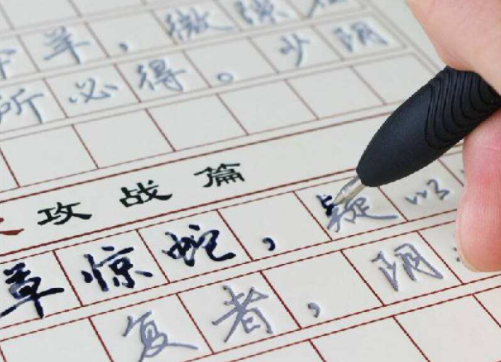 羊，微隙在
所必得。少阴
攻战篇
草惊蛇，疑以
复者，阴